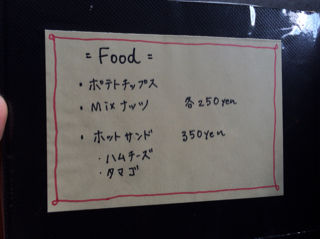 = Food =
・ポテトチップス
・Mixナッツ 各250yen
・ホットサンド 350yen
・ハムチーズ
・タマゴ